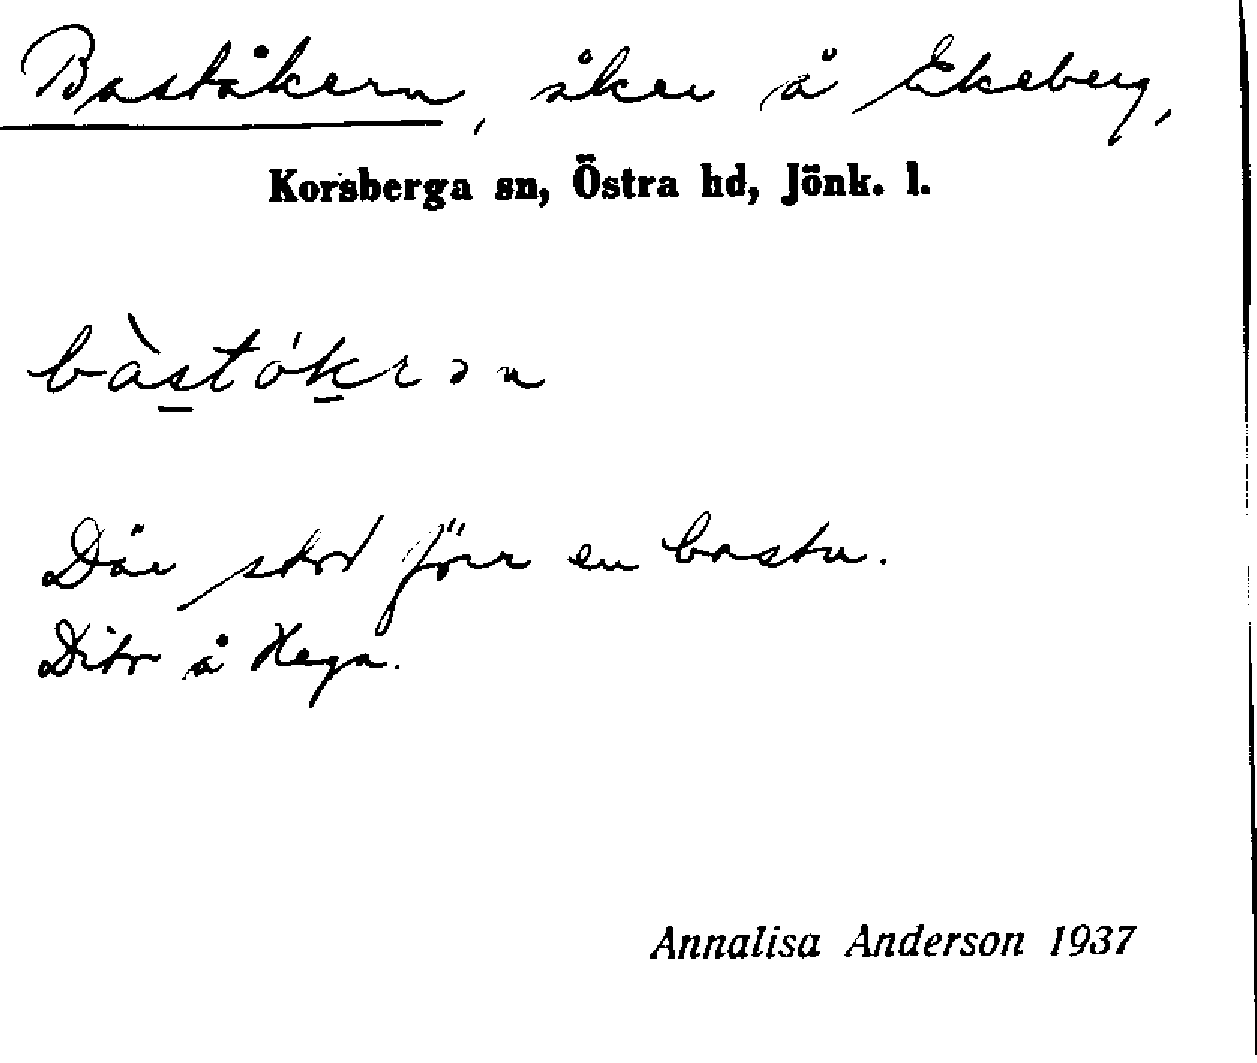 Baståkern, åker å Ekeberg,
Korsberga sn, Östra hd, Jönk. l.
bàstókrən
Där stod förr en bastu.
Dito å Haga.
Annalisa Anderson 1937